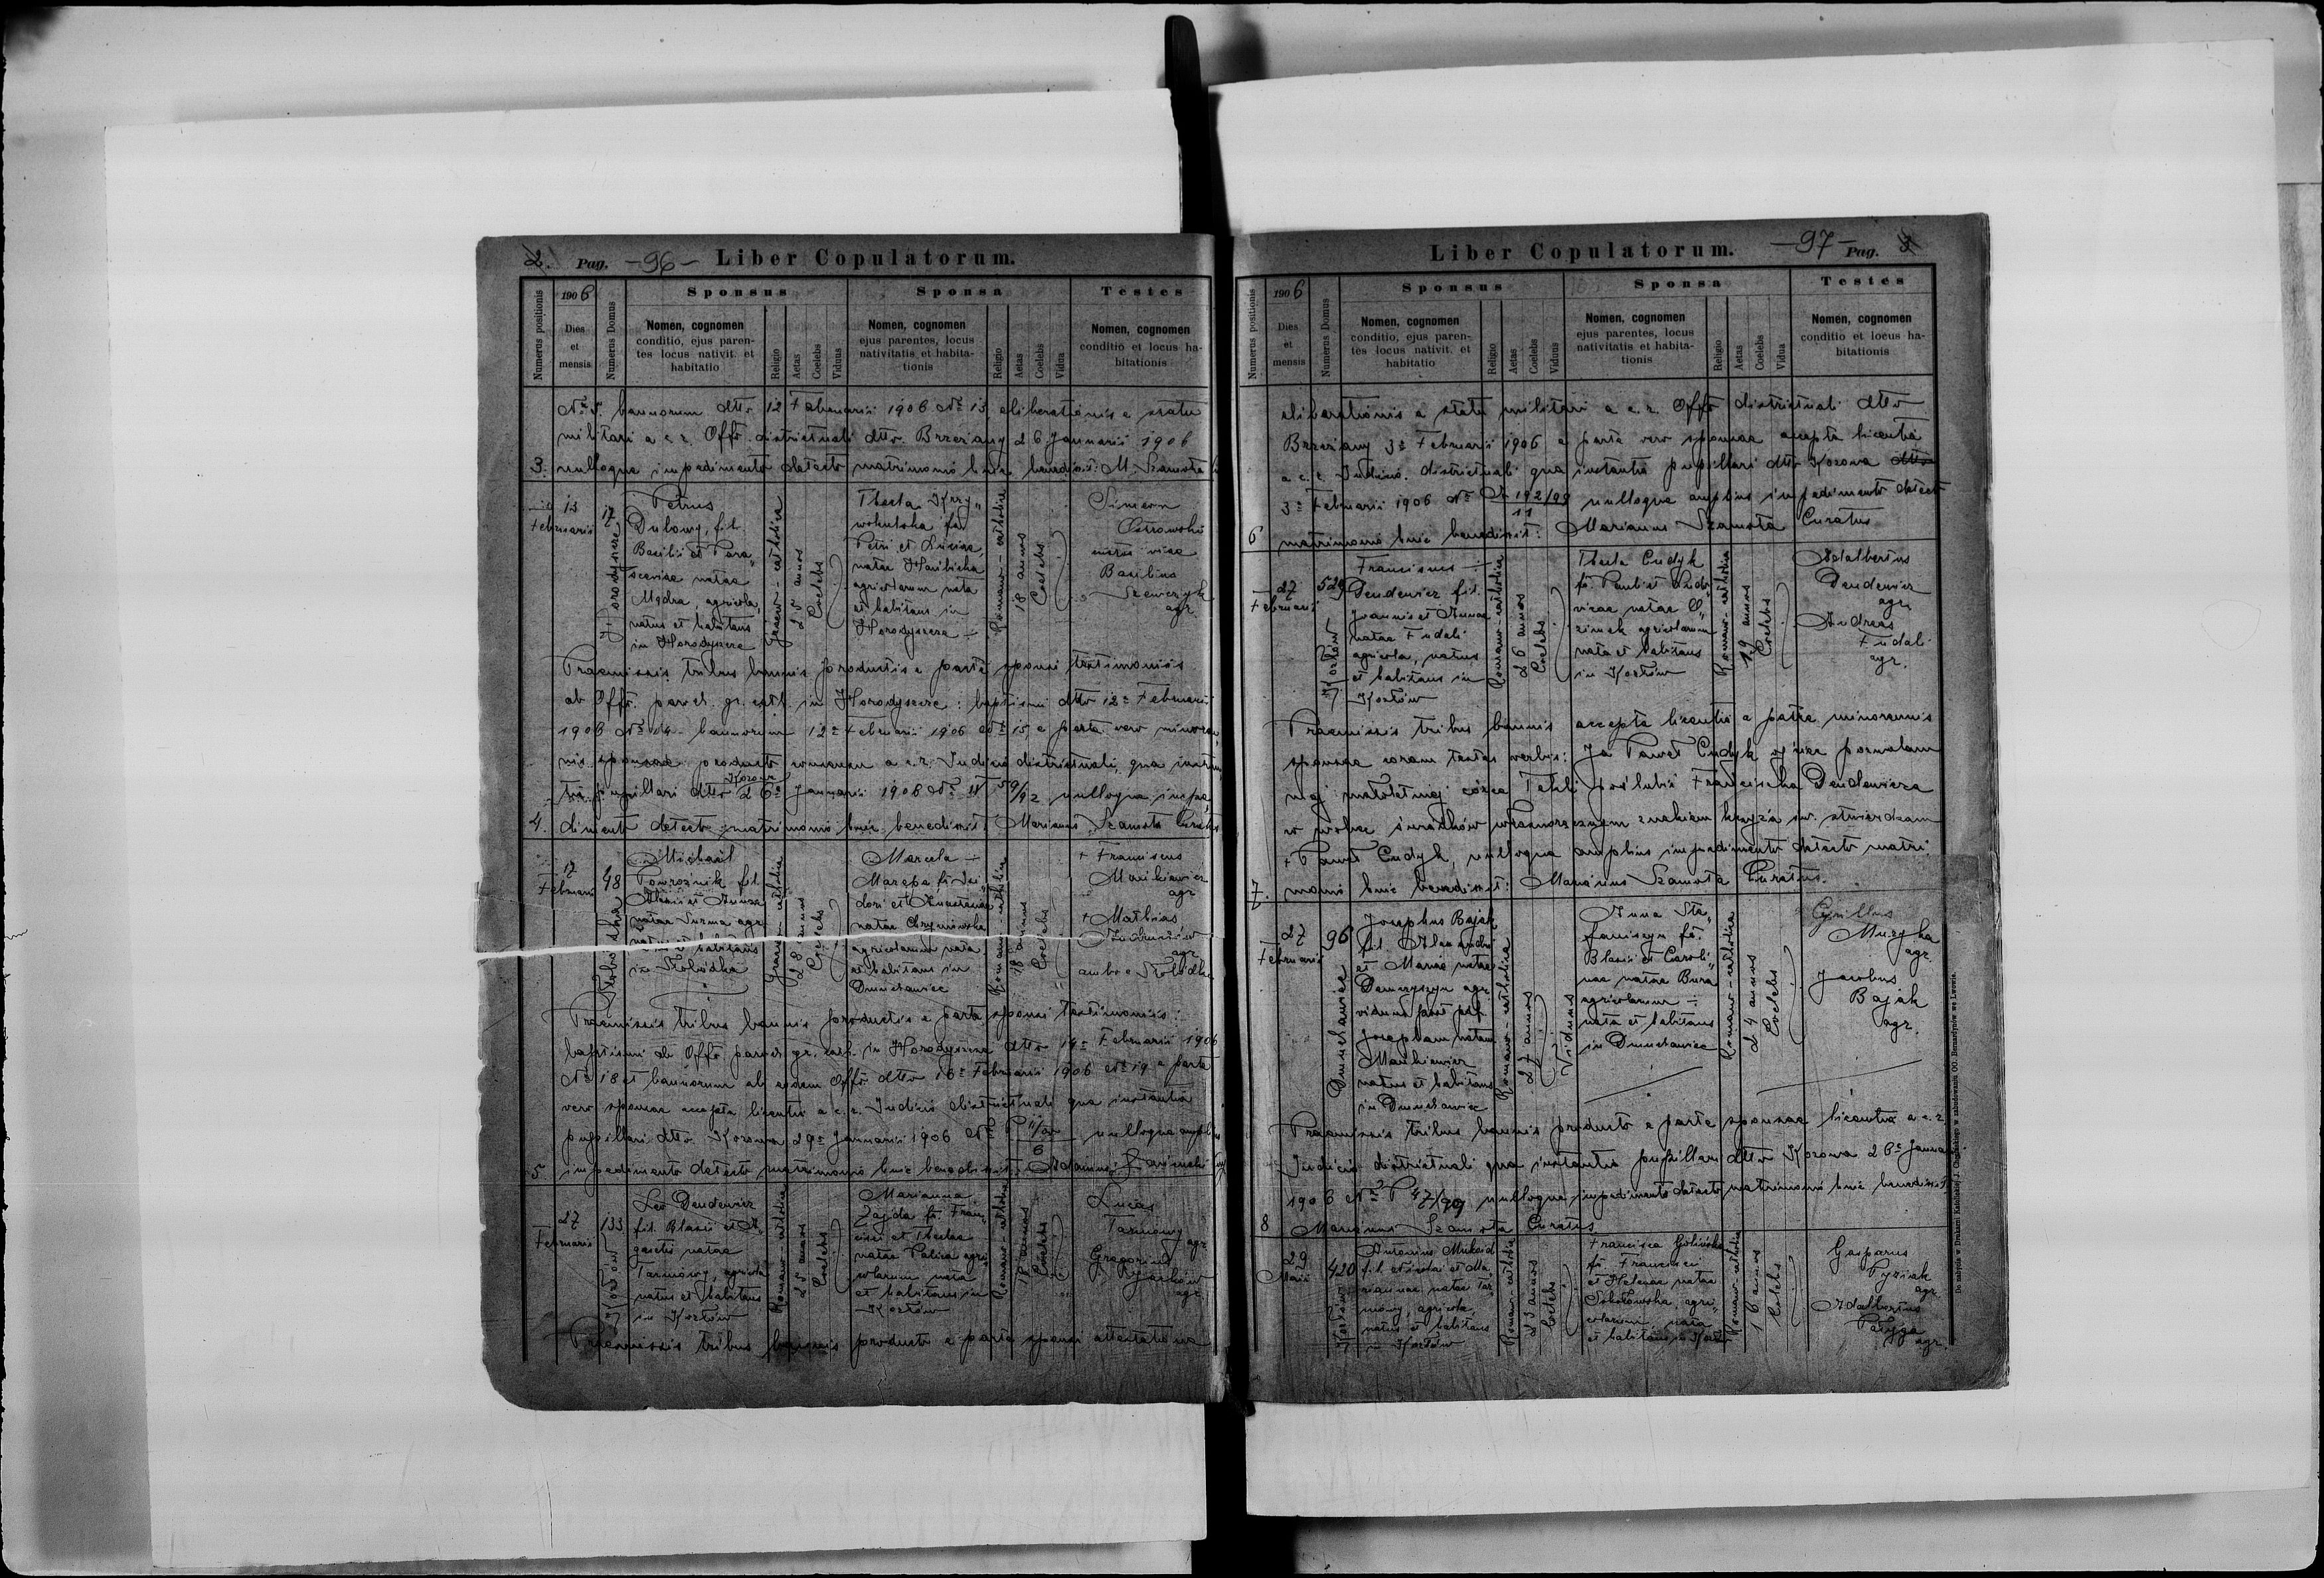 2. Pag. -96- Liber Copulatorum.
Numerus positionis
1906
Dies et mensis
Numerus Domus
Sponsus
Nomen, cognomen
conditio, ejus paren-
tes locus nativit. et
habitatio
Religio
Aetas
Coelebs
Viduus
Sponsa
Nomen, cognomen
ejus parentes, locus
nativitatis et habita-
tionis
Religio
Aetas
Coelebs
Vidua
Testes
Nomen, cognomen
conditio et locus ha-
bitationis
bannorum dtto 12 Februarii 1906 № 13 eliberationis e statu
militari a c. r. Offo districtuali dtto. Brzeżany 26 Januarii 1906
3. nulloque impedimento detecto matrimonio huic benedixit: M. Szamota
13
Februarii
17
Horodyszcze
Petrus
Dulowy, fil.
Basilii et Para„
sceviae natae
Mądra, agricola,
natus et habitans
in Horodyszcze
Graeco-catholica
25 annos
Coelebs
Thecla Krzy„
Petri et Luciae,
agricolarum nata
et habitans in
Horodyszcze
Romano-catholica
18 annos
Coelebs
Simeon
Basilius
Szewczyk
agr
Praemissis tribus bannis productis e parte sponsi testimoniis
ab Offo. paroch. gr. cath. in Horodyszcze: baptismi dtto 12a Februarii
1906 № 14 bannorum 12a Februarii 1906 № 15, e parte vero minoren„
nis sponsae producto consensu a c. r. Judicio districtuali, qua instan„
tia pupillari dtto Kozowa 26a Januarii 1906 nulloque impe„
4. dimento detecto matrimonio huic benedixit: Marianus Szamota Curatus
17
Februarii
48
Słobodka
Michaël
Powroźnik fil.
Alexii et Annae
natae Surma agr.
natus et habitans
in Słobódka
Graeco-catholica
28 annos
Coelebs
Marcela
dori et Anastasiae
agricolarum nata
et habitans in
Dmuchawiec
Romano-catholica
18 annos
Coelebs
+ Franciscus
Mankiewicz
agr
+ Mathias
agr
ambo e Słobódka
Praemissis tribus bannis productis e parte sponsi testimoniis:
baptismi ab Offo. paroch. gr. cath. in Horodyszcze dtto 14a Februarii 1906
№ 18 et bannorum ab eodem Offo dtto 16a Februarii 1906 № 19 e parte
vero sponsae accepta licentia a c. r. Judicio districtuali qua instantia
pupillari dtto. Kozowa 29a Januarii 1906 nulloque amplius
5. impedimento detecto matrimonio huic benedixit:
27
Februarii
133
Kozłów
Leo Dendewicz
fil. Blasii et A„
gnetis natae
Tarnowy, agricola
natus et habitans
in Kozłów
Romano-catholica
25 annos
Coelebs
Marianna
Zajda fa. Fran„
cisci et Theclae
natae Palica agri„
colarum nata
et habitans in
Kozłów
Romano-catholica
18 annos
Coelebs
Lucas
Tarnowy
agr
Gregorius
agr.
Praemissis tribus bannis producto e parte sponsi attestatione
Liber Copulatorum. -97- Pag. 3
Numerus positionis
1906
Dies et mensis
Numerus Domus
Sponsus
Nomen, cognomen
conditio, ejus paren-
tes locus nativit. et
habitatio
Religio
Aetas
Coelebs
Viduus
Sponsa
Nomen, cognomen
ejus parentes, locus
nativitatis et habita-
tionis
Religio
Aetas
Coelebs
Vidua
Testes
Nomen, cognomen
conditio et locus ha-
bitationis
eliberationis e statu militari a c. r. Offo districtuali dtto
Brzeżany 3a Februarii 1906 e parte vero sponsae accepta licentia
a c. r. Judicio. districtuali qua instantia pupillari dtto Kozowa
3a Februarii 1906 № 192/99 nulloque amplius impedimento detecto
11
6 matrimonio huic benedixit: Marianus Szamota Curatus
27
Februarii
529
Kozłów
Franciscus
Dendewicz fil.
Joannis et Annae
natae Fudali
agricola, natus
et habitans in
Kozłów
Romano-catholica
26 annos
Coelebs
Thecla Cudyk
fa. Pauli et Ludo„
vicae natae O„
zimek agricolarum
nata et habitans
in Kozłów
Romano-catholica
19 annos
Coelebs
Adalbertus
Dendewicz
agr.
Andreas
Fudali
agr.
Praemissis tribus bannis accepta licentia a patre minorennis
sponsae coram testes verbis: Ja Paweł Cudyk ojciec pozwalam
mej małoletniej córce Tekli poślubić Franciszka Dendewicza
w wobec świadków własnoręcznym znakiem krzyża św. stwierdzam
+ Paweł Cudyk, nulloque amplius impedimento detecto matri„
7. monio huic benedixit: Marianus Szamota Curatus.
27
Februarii
96
Dmuchawiec
Josephus Bajak
fil. Alexandri
et Mariae natae
Demczyszyn agr.
viduus post pdef.
Josepham natam
Mankiewicz
natus et habitans
in Dmuchawiec
Romano-catholica
27 annos
Viduus
Anna Ste„
faniszyn fa.
Blasii et Caroli„
nae natae Bura
agricolarum
nata et habitans
in Dmuchawiec
Romano-catholica
24 annos
Coelebs
Cyrillus
Muzyka
agr.
Jacobus
Bajak
agr.
Praemissis tribus bannis producto e parte sponsae licentia a c. r.
Judicio districtuali qua instantia pupillari dtto Kozowa 26a Januarii
1906 № P 47/99 nulloque impedimento detecto matrimonio huic benedixit
8 Marianus Szamota Curatus
29
Maii
420
Kozłów
Antonius Mukoid
fil. Nicolai et Ma„
riannae natae Tar„
nowy, agricola,
natus et habitans
in Kozłów
Romano-catholica
23 annos
Coelebs
Francisca Golińska
fa. Francisci
et Helenae natae
Sokołowska, agri„
colarum, nata
et habitans in Kozłów
Romano-catholica
16 annos
Coelebs
Gasparus
Pyziak
agr.
Adalbertus
Patyga
agr.
Do nabycia w Drukarni Katolickiej J. Chęcińskiego w zabudowaniu OO. Bernardynów we Lwowie.